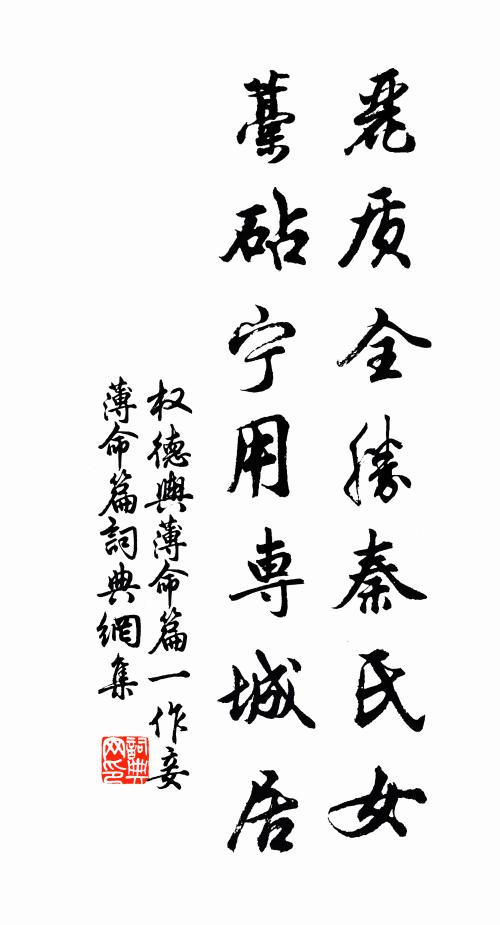 麗质全勝秦氏女
藁砧宁用専城居
权德輿薄命篇一作妾
薄命篇詞典網集
詞典
网印